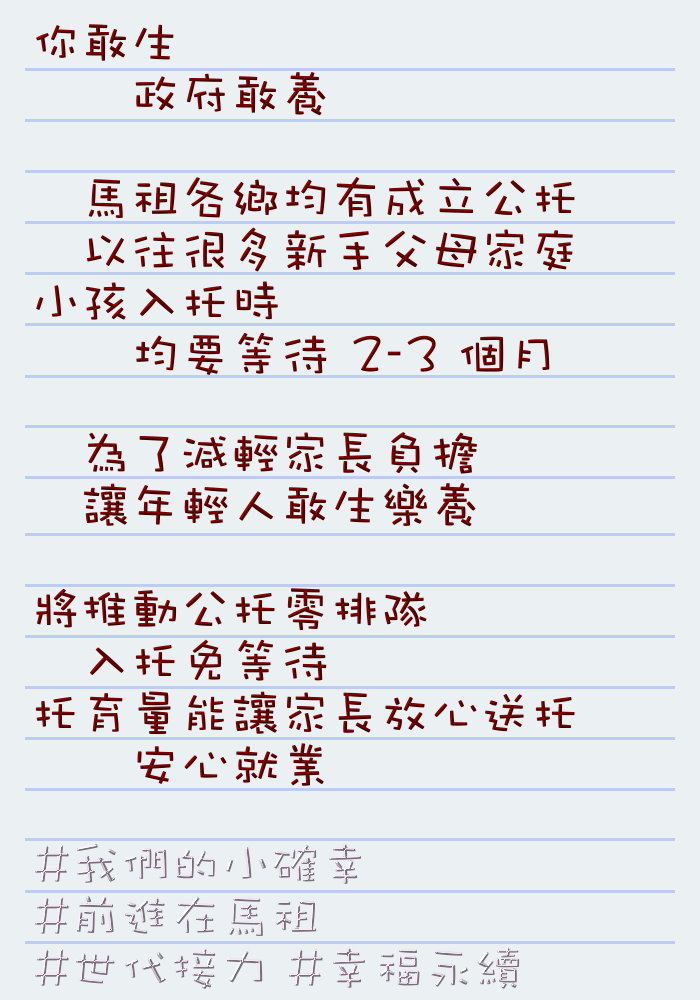 你敢生
政府敢養
馬祖各鄉均有成立公托
以往很多新手父母家庭
小孩入托時
均要等待 2-3 個月
為了減輕家長負擔
讓年輕人敢生樂養
將推動公托零排隊
入托免等待
托育量能讓家長放心送托
安心就業
#我們的小確幸
#前進在馬祖
#世代接力 #幸福永續